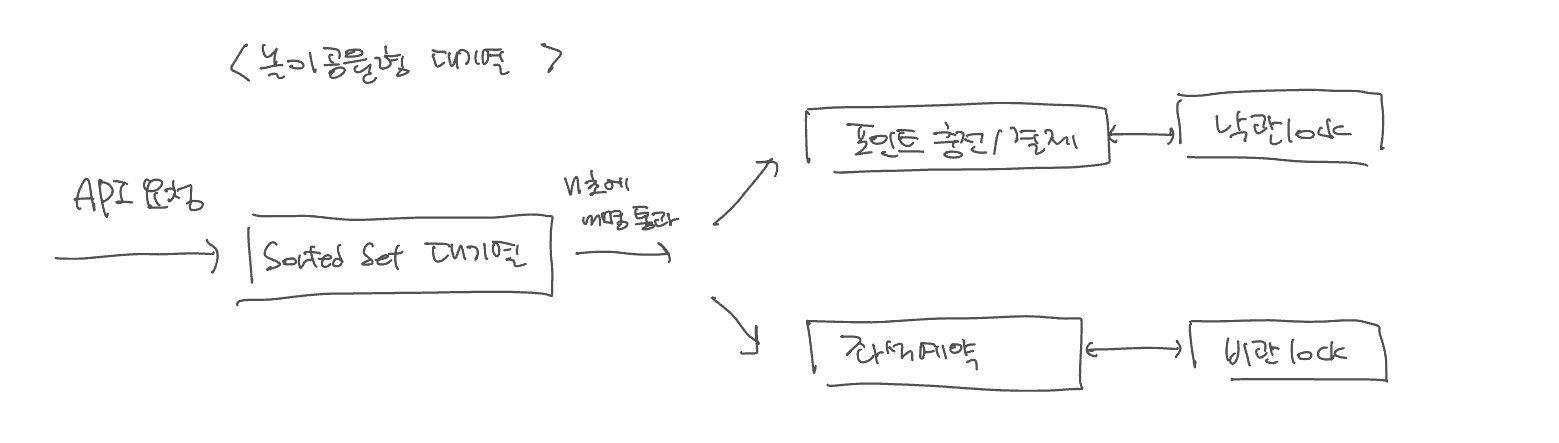 <놀이공원형 대기열>
API 요청
Sorted Set 대기열
N초에
M명 통과
포인트 충전/결제
낙관lock
좌석예약
비관lock